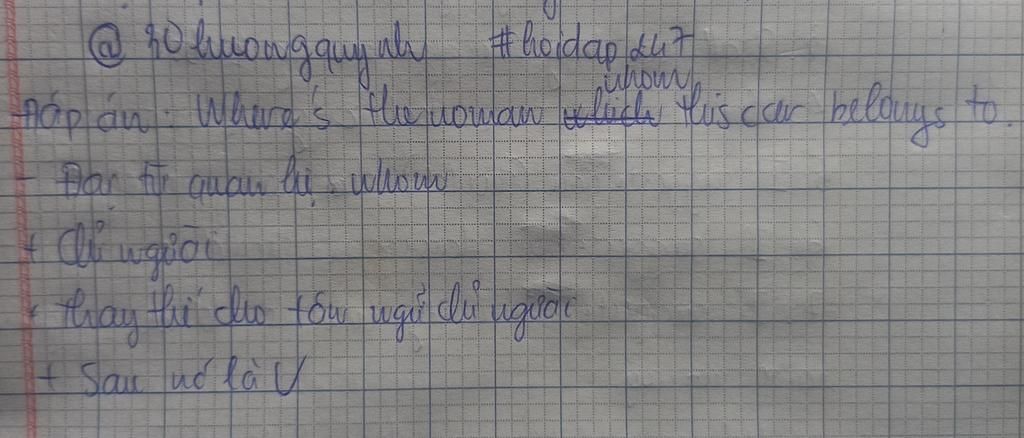 @ 30huongquynh #hoidap247
Đáp án: Where's the woman whom this car belongs to.
- Đại từ quan hệ whom
+ Chỉ người
+ thay thế cho tân ngữ chỉ người
+ Sau nó là V